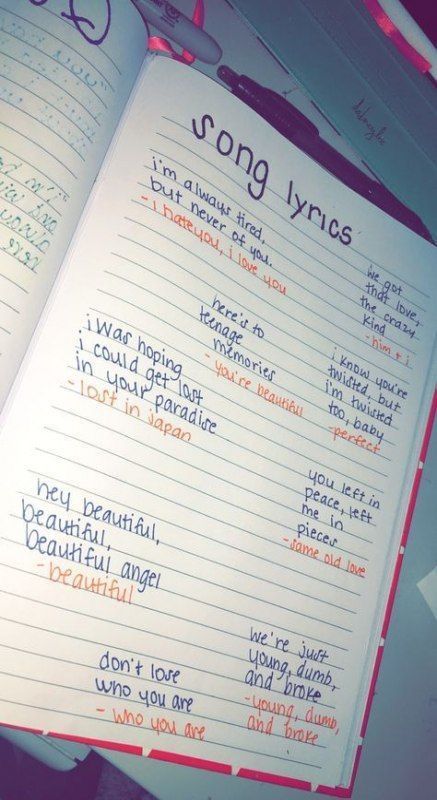 song lyrics
i'm always tired,
but never of you.
- i hate you, i love you
we got
that love,
the crazy
kind
- him + i
here's to
teenage
memories
- you're beautiful
i know you're
twisted, but
i'm twisted
too, baby
- perfect
i was hoping
i could get lost
in your paradise
- lost in japan
you left in
peace, left
me in
pieces
- same old love
hey beautiful,
beautiful,
beautiful angel
- beautiful
we're just
young, dumb,
and broke
- young, dumb,
and broke
don't lose
who you are
- who you are